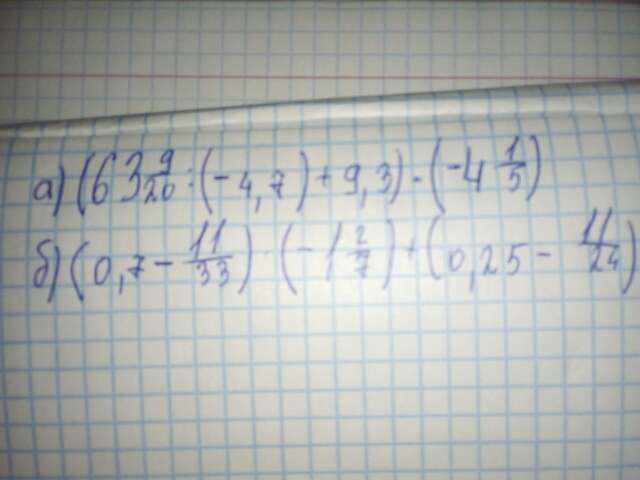 а) (63 9/20 : (-4,7) + 9,3) · (-4 1/5)
б) (0,7 - 11/33) · (-1 2/7) + (0,25 - 11/24)